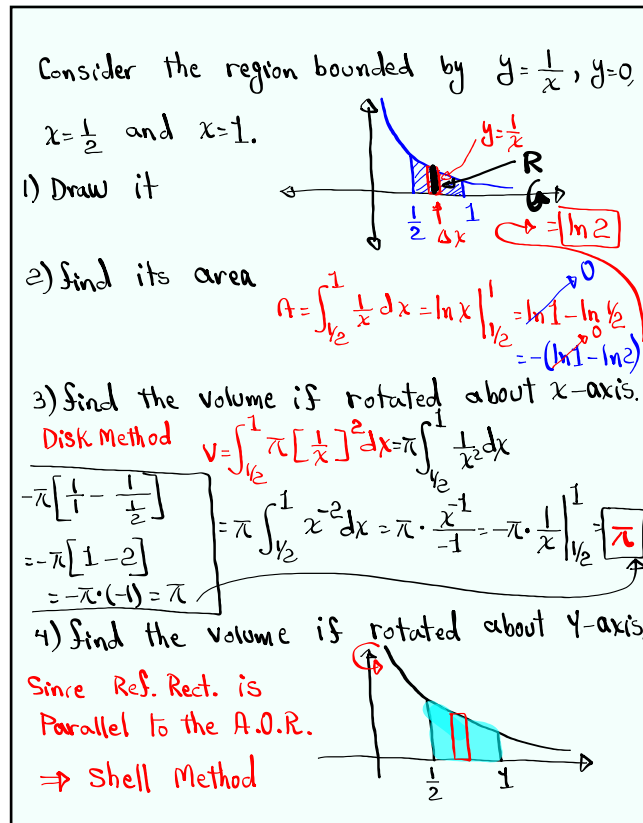 Consider the region bounded by y = 1/x, y=0,
x=1/2 and x=1.
y=1/x
R
1) Draw it
1/2 Δx 1
= ln 2
2) find its area
A = ∫_{1/2}^{1} 1/x dx = ln x |_{1/2}^{1} = ln 1 - ln 1/2
0
= -(ln 1 - ln 2)
0
3) find the volume if rotated about x-axis.
Disk Method V = ∫_{1/2}^{1} π [1/x]^2 dx = π ∫_{1/2}^{1} 1/x^2 dx
= π ∫_{1/2}^{1} x^{-2} dx = π · x^{-1}/-1 = -π · 1/x |_{1/2}^{1} = π
-π [1/1 - 1/(1/2)]
= -π [1 - 2]
= -π · (-1) = π
4) find the volume if rotated about Y-axis.
Since Ref. Rect. is
Parallel to the A.O.R.
⇒ Shell Method
1/2 1